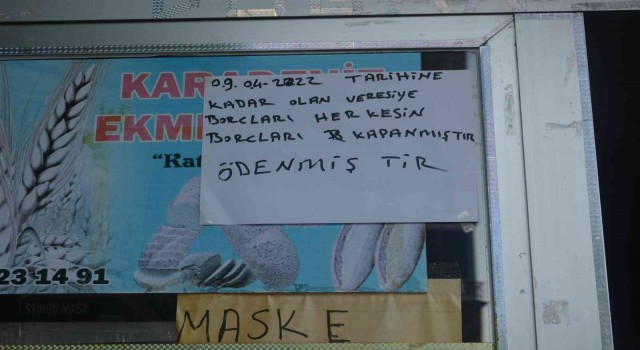 KARADENİZ
EKM
"Kat
09.04-2022 TARİHİNE
KADAR OLAN VERESİYE
BORCLARI HERKESİN
BORCLARI KAPANMIŞTIR
ÖDENMİŞ TİR
23 14 91
STINGO MASK
MASKE